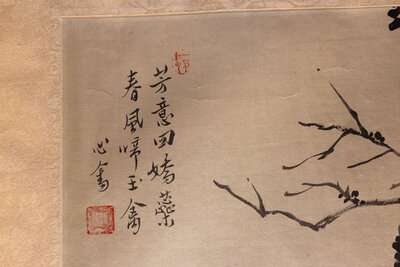 芳意回嬌蘂
春風啼玉禽
心畬